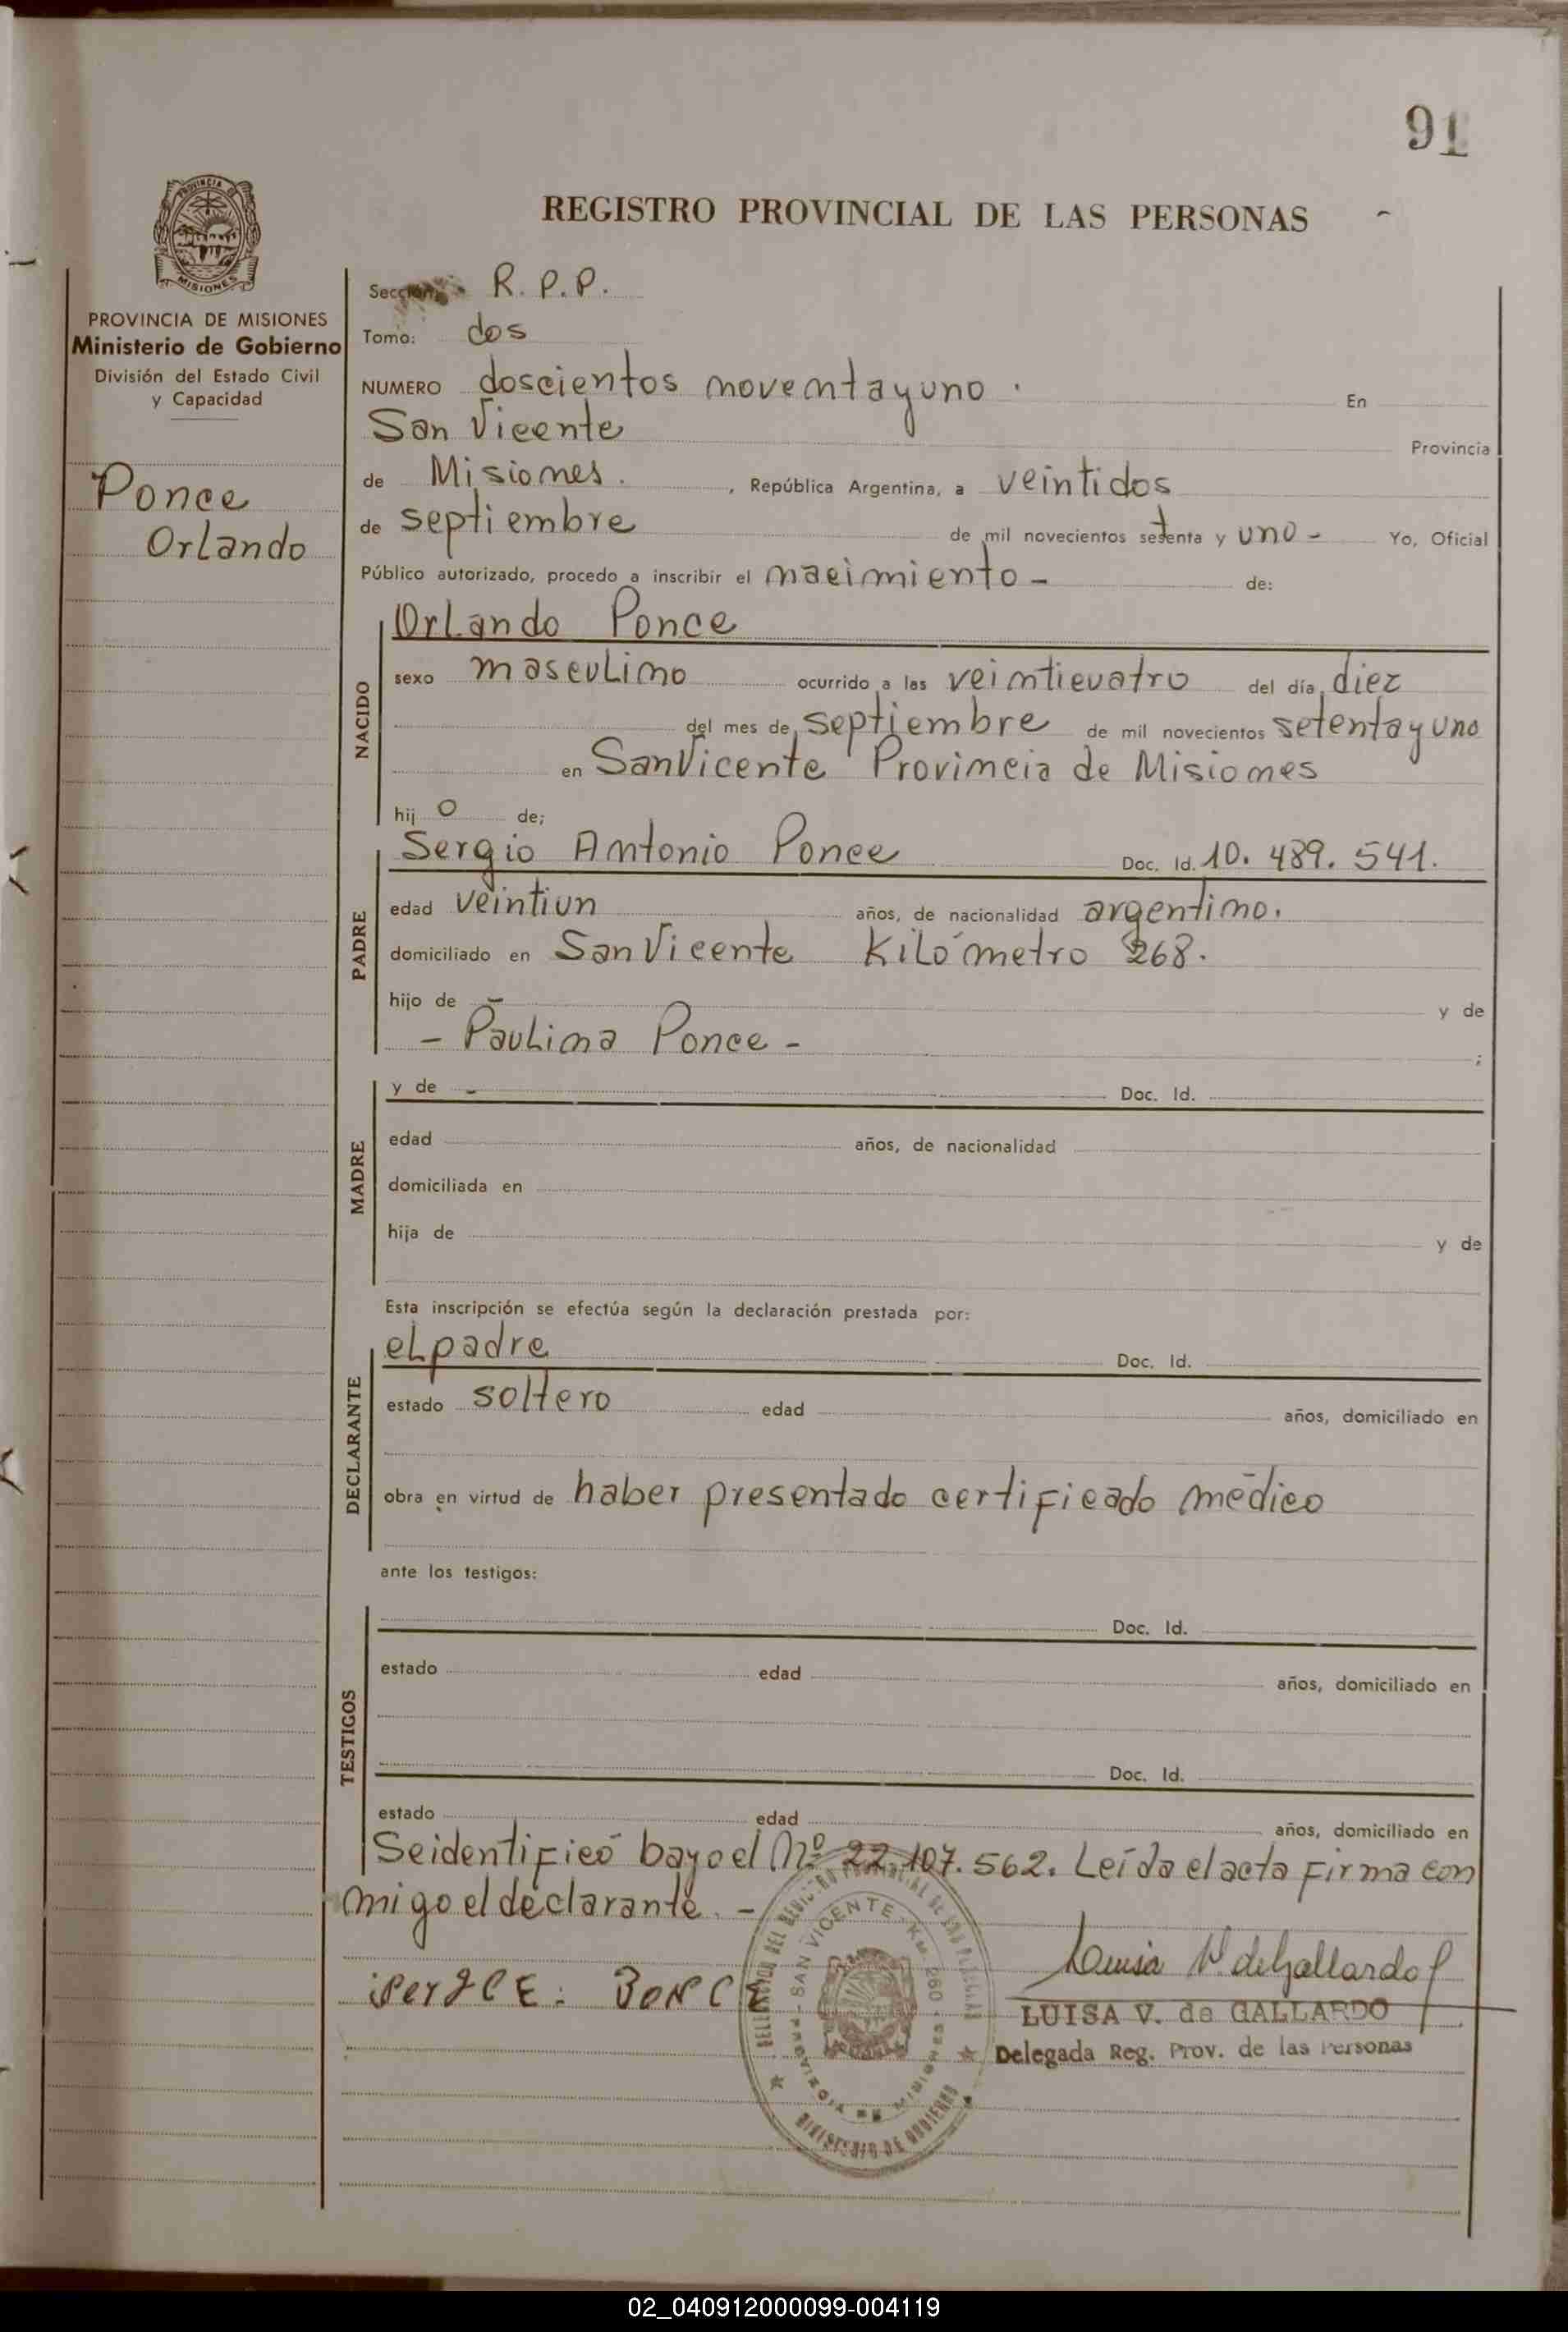 91
REGISTRO PROVINCIAL DE LAS PERSONAS
PROVINCIA DE MISIONES
PROVINCIA DE MISIONES
Ministerio de Gobierno
División del Estado Civil
y Capacidad
Ponce
Orlando
Sección: R. P. P.
Tomo: dos
NUMERO doscientos noventa y uno . En
San Vicente Provincia
de Misiones. , República Argentina, a veintidos
de septiembre de mil novecientos setenta y uno - Yo, Oficial
Público autorizado, procedo a inscribir el nacimiento - de:
NACIDO
Orlando Ponce
sexo masculino ocurrido a las veinticuatro del día diez
del mes de septiembre de mil novecientos setenta y uno
en San Vicente Provincia de Misiones
hij o de;
PADRE
Sergio Antonio Ponce Doc. Id. 10. 489. 541.
edad veintiun años, de nacionalidad argentino.
domiciliado en San Vicente Kilómetro 268.
hijo de - y de
- Paulina Ponce - ;
MADRE
y de - Doc. Id.
edad años, de nacionalidad
domiciliada en
hija de y de
Esta inscripción se efectúa según la declaración prestada por:
DECLARANTE
el padre Doc. Id.
estado soltero edad años, domiciliado en
obra en virtud de haber presentado certificado médico
ante los testigos:
TESTIGOS
Doc. Id.
estado edad años, domiciliado en
Doc. Id.
estado edad años, domiciliado en
Se identificó bayo el Nº 22.107.562. Leída el acta firma con
migo el declarante. -
Luisa V de Gallardo
LUISA V. de GALLARDO
Delegada Reg. Prov. de las Personas
DELEGACION DEL REGISTRO PROVINCIAL DE LAS PERSONAS
SAN VICENTE - KM. 260 - PROVINCIA DE MISIONES
MINISTERIO DE GOBIERNO
02_040912000099-004119